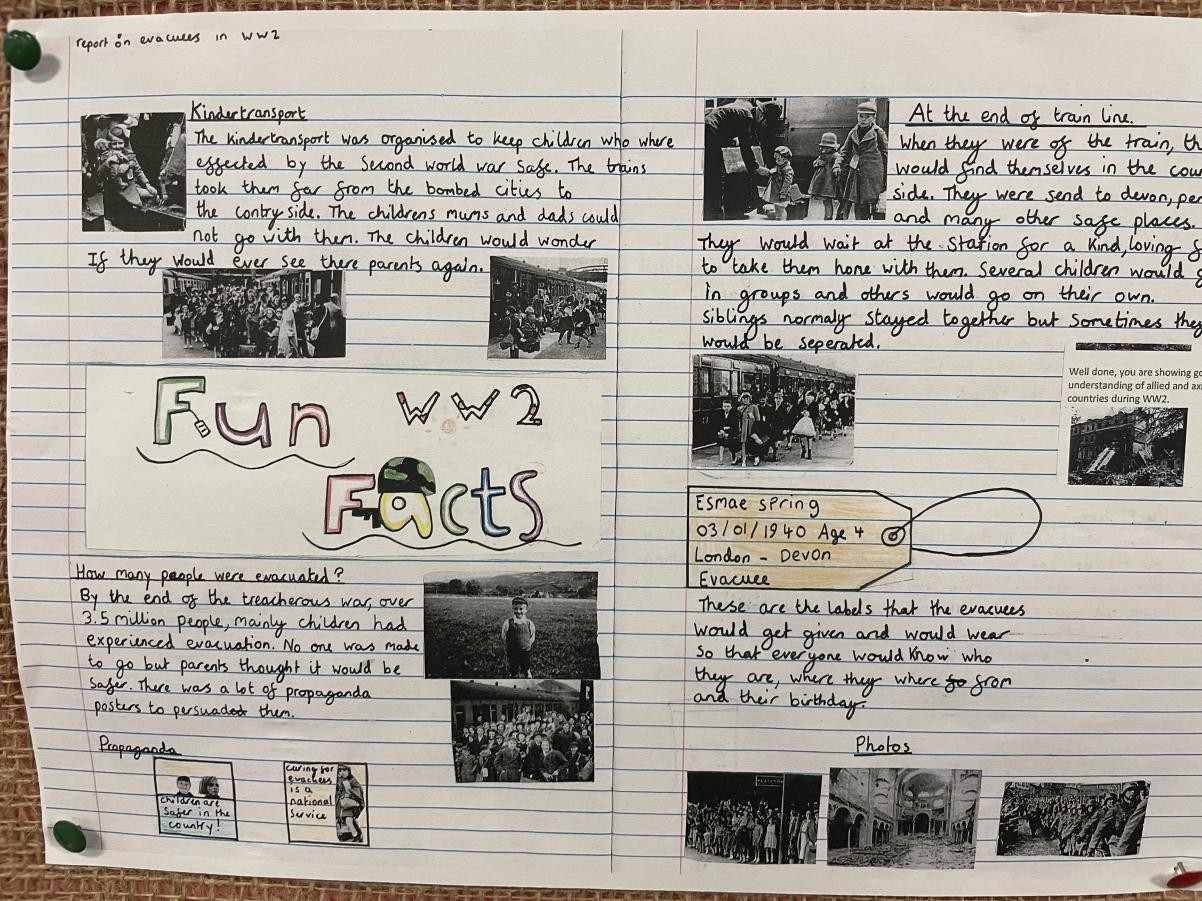 report on evacuees in WW2
Kindertransport
The Kindertransport was organised to keep children who where
effected by the Second world war Safe. The trains
took them far from the bombed cities to
the contry side. The childrens mums and dads could
not go with them. The children would wonder
If they would ever see there parents again.
Fun WW2
Facts
How many people were evacuated?
By the end of the treacherous war, over
3.5 million people, mainly children had
experienced evacuation. No one was made
to go but parents thought it would be
Safer. There was a lot of propaganda
posters to persuade them.
Propaganda
children are
Safer in the
country!
caring for
evacuees
is a
national
Service
At the end of train line.
When they were of the train, th
would find themselves in the cou
side. They were send to devon, pe
and many other safe places.
They would wait at the Station for a Kind, loving f
to take them home with them. Several children would g
in groups and others would go on their own.
Siblings normaly stayed together but Sometimes they
would be seperated.
Well done, you are showing go
understanding of allied and axi
countries during WW2.
Esmae Spring
03/01/1940 Age 4
London - Devon
Evacuee
These are the labels that the evacuees
would get given and would wear
so that everyone would Know who
they are, where they where fo from
and their birthday.
Photos